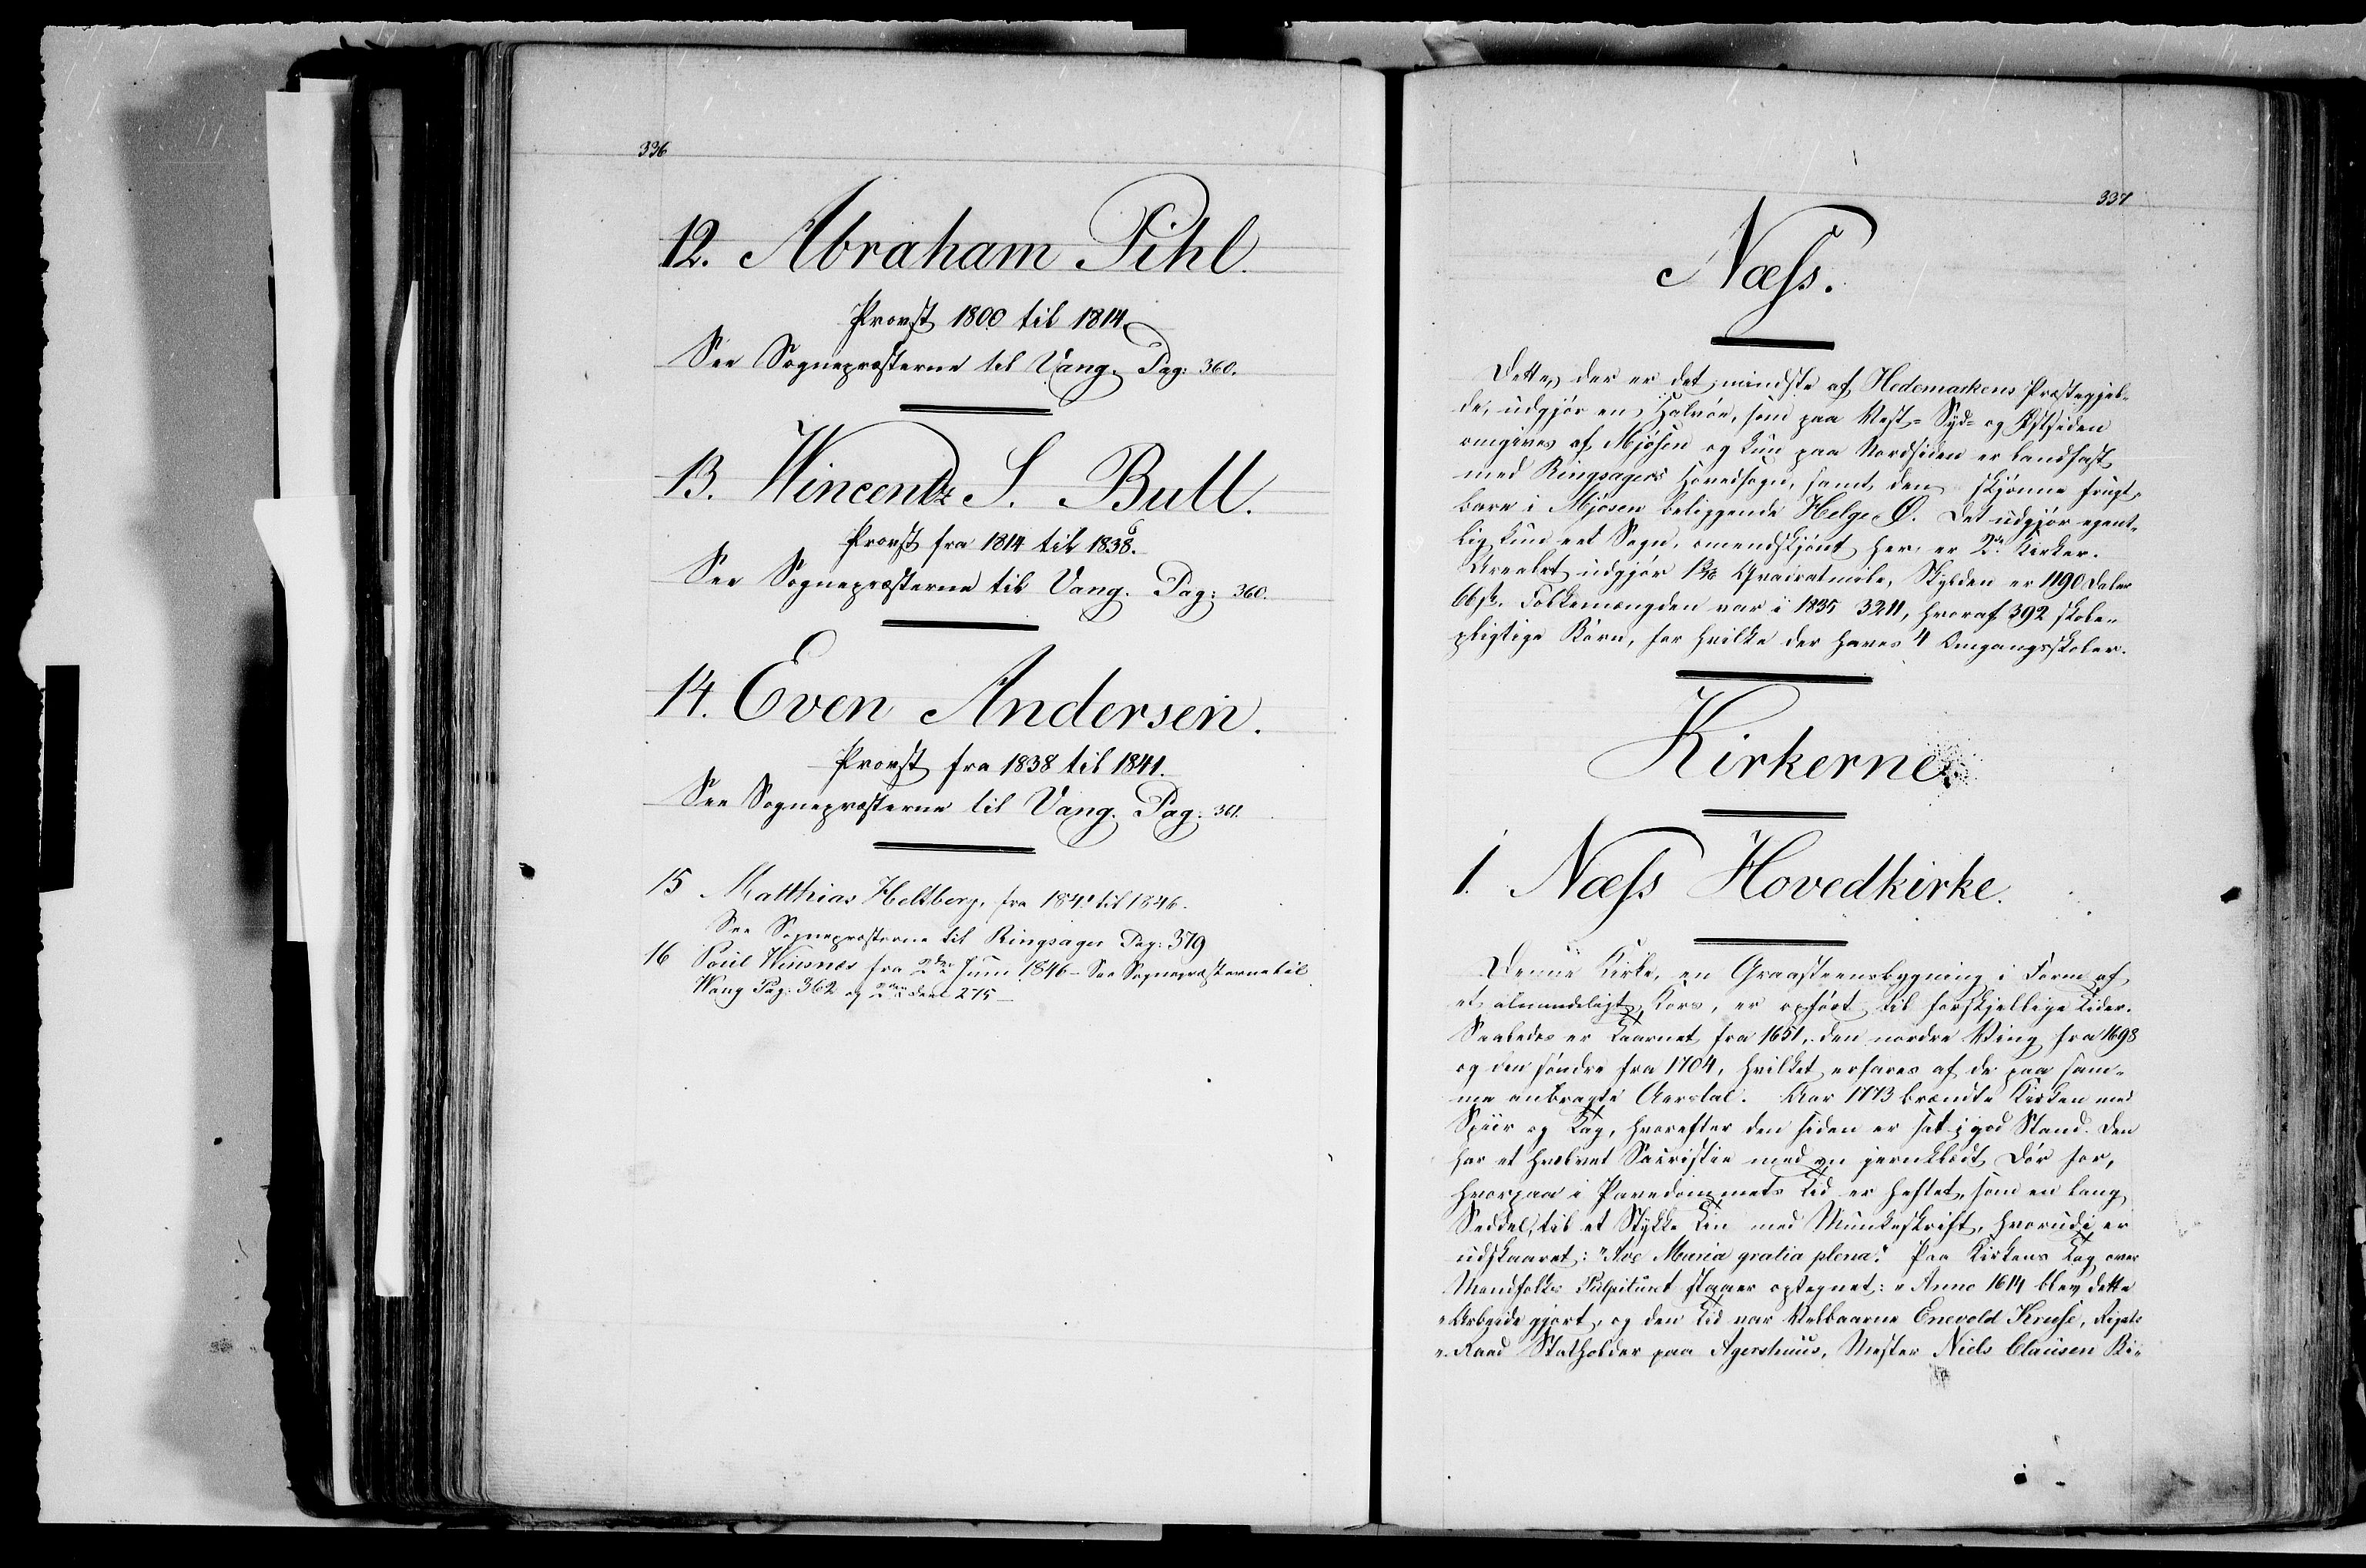 336
12. Abraham Pihl.
Provst 1800 til 1814.
See Sognepræsterne til Vang. Pag: 360.
13. Wincentz S. Bull.
Provst fra 1814 til 1838.
See Sognepræsterne til Vang. Pag: 360.
14. Even Andersen.
Provst fra 1838 til 1841.
See Sognepræsterne til Vang. Pag: 361.
15 Matthias Heltberg, fra 1841 til 1846.
See Sognepræsterne til Ringsager Pag: 379
16 Paul Winsnes fra 2den Juni 1846 – See Sognepræsterne til
Wang Pag: 362 og 2den Deel 275 –
337
Næss.
Dette, der er det mindste af Hedemarkens Præstegjel-
de, udgjør en Halvöe, som paa Vest- Syd- og Østsiden
omgives af Mjösen og kun paa Nordsiden er landfast
med Ringsagers Hovedsogn, samt den skjönne frugt-
bare i Mjösen beliggende Helge-Ø. Det udgjør egent-
lig kun eet Sogn, omendskjönt her er 2de Kirker.
Arealet udgjør Qvadratmile, Skylden er 1190 Daler
66 sk. Folkemængden var i 1835 3211, hvoraf 392 skole-
pligtige Börn, for hvilke der haves 4 Omgangsskoler.
Kirkerne.
1. Næss Hovedkirke.
Denne Kirke, en Graasteensbygning i Form af
et almindeligt Kors, er opfört til forskjellige Tider.
Saaledes er Taarnet fra 1651, den nordre Ving fra 1698
og den söndre fra 1704, hvilket erfares af de paa sam-
me anbragte Aarstal. Aar 1773 brændte Kirken med
Spiir og Tag, hvorefter den siden er sat i god Stand. Den
har et hvælvet Sacristie med en jernklædt Dör for,
hvorpaa i Pavedommets Tid er heftet, som en lang
Seddel, til et Stykke Tin med Munkeskrift, hvorudi er
udskaaret: "Ave Maria gratia plena." Paa Kirkens Tag over
Mandfolke Pulpituret staaer optegnet: "Anno 1614 blev dette
"Arbeide gjort, og den Tid var Velbaarne Enevold Kruse, Rigets
"Raad Statholder paa Agershuus, Mester Niels Clausen Bi-